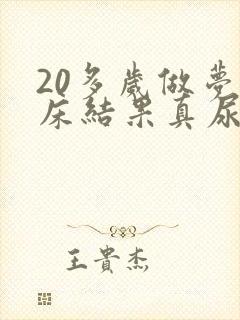 20多歲做夢
床結果真尿
王貴杰